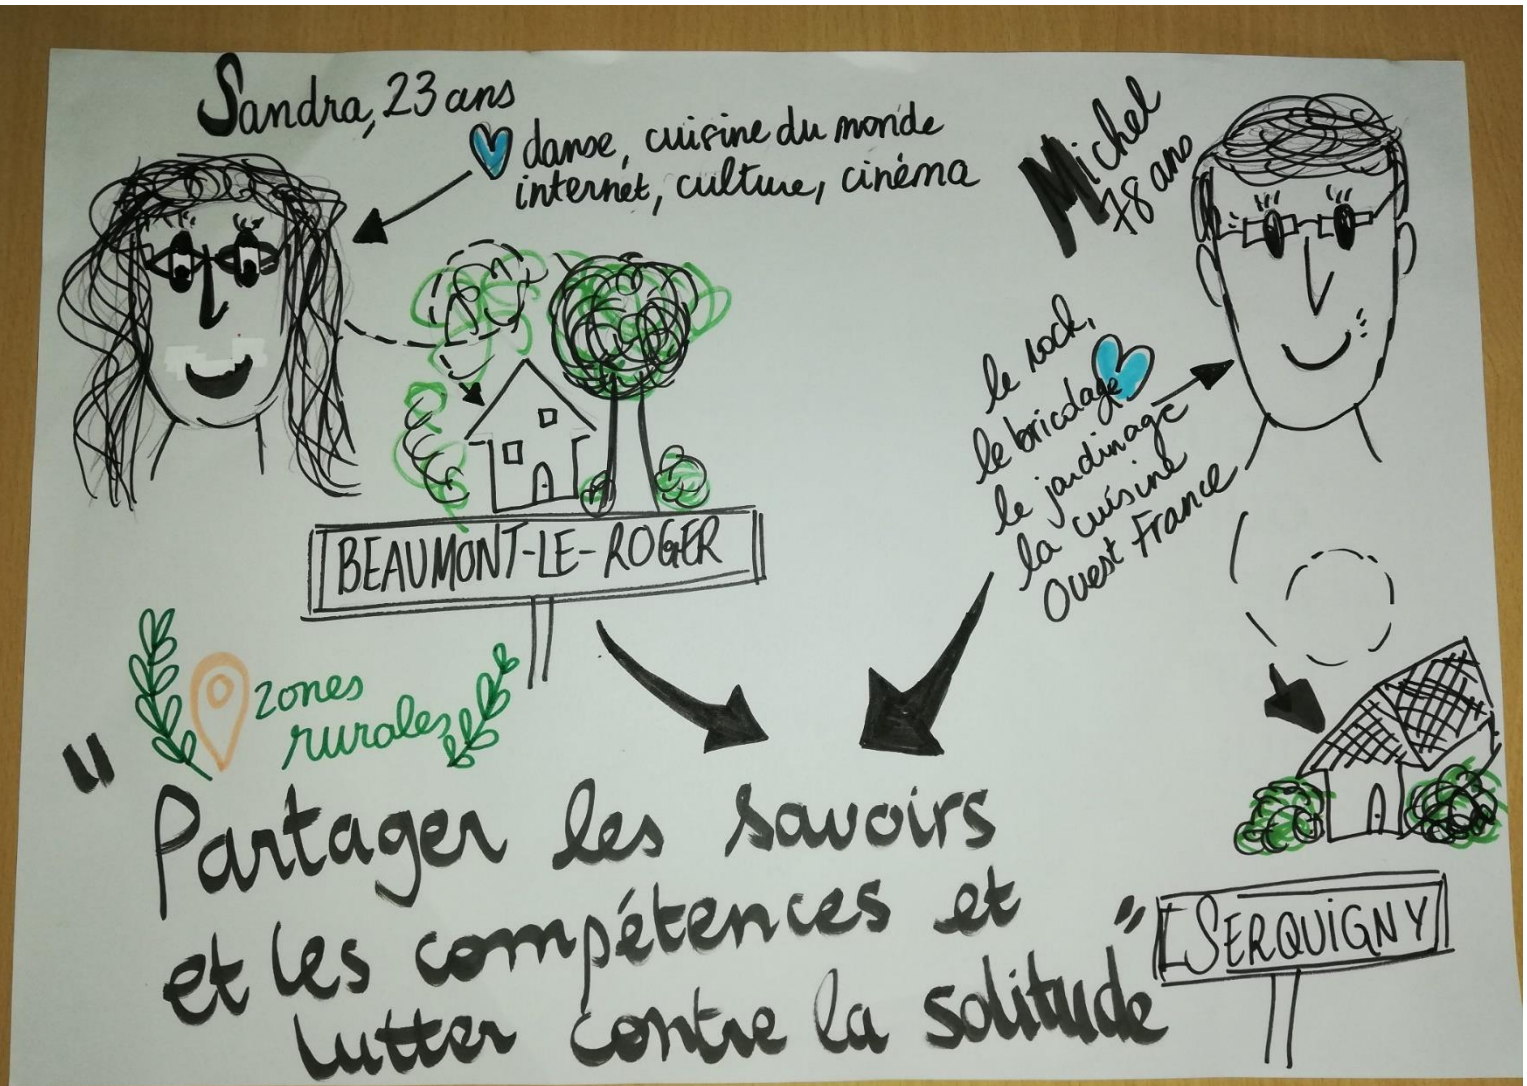 Sandra, 23 ans
danse, cuisine du monde
internet, culture, cinéma
Michel
78 ans
le rock,
le bricolage
le jardinage
la cuisine
Ouest France
BEAUMONT-LE-ROGER
zones
rurales
"Partager les savoirs
et les compétences et
lutter contre la solitude"
SERQUIGNY